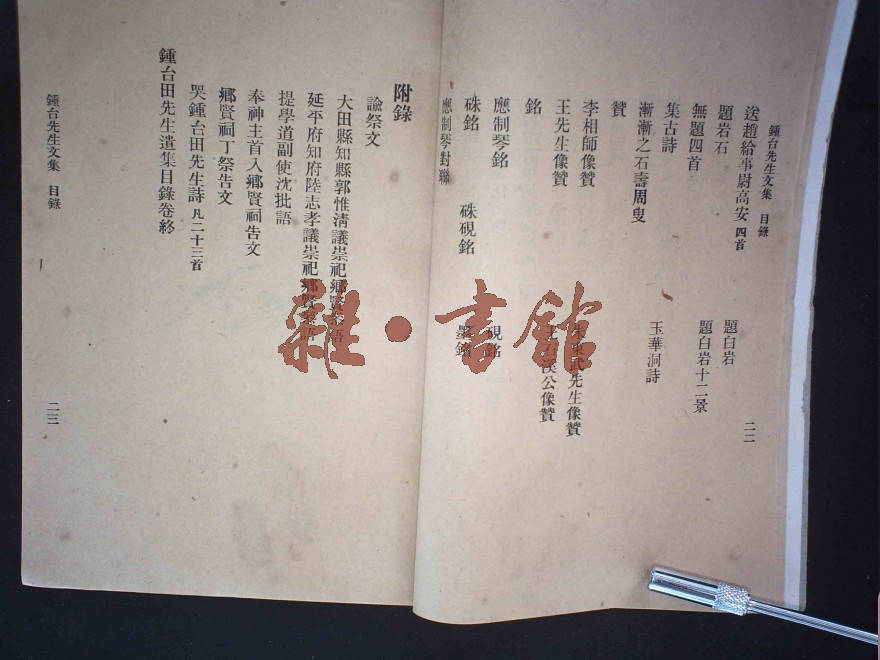 鍾台先生文集 目錄
二二
送趙給事尉高安 四首
題岩石 題白岩
無題四首 題白岩十二景
集古詩
漸漸之石壽周叟 玉華洞詩
贊
李相師像贊 東武先生像贊
王先生像贊 石溪公像贊
銘
應制琴銘 硯銘
硃銘 硃硯銘 墨銘
應制琴對聯
附錄
諭祭文
大田縣知縣郭惟淸議崇祀鄉賢祭語
延平府知府陸志孝議崇祀鄉賢
提學道副使沈批語
奉神主首入鄉賢祠告文
鄉賢祠丁祭告文
哭鍾台田先生詩 凡二十三首
鍾台田先生遺集目錄卷終
鍾台先生文集 目錄
二三
雜·書館